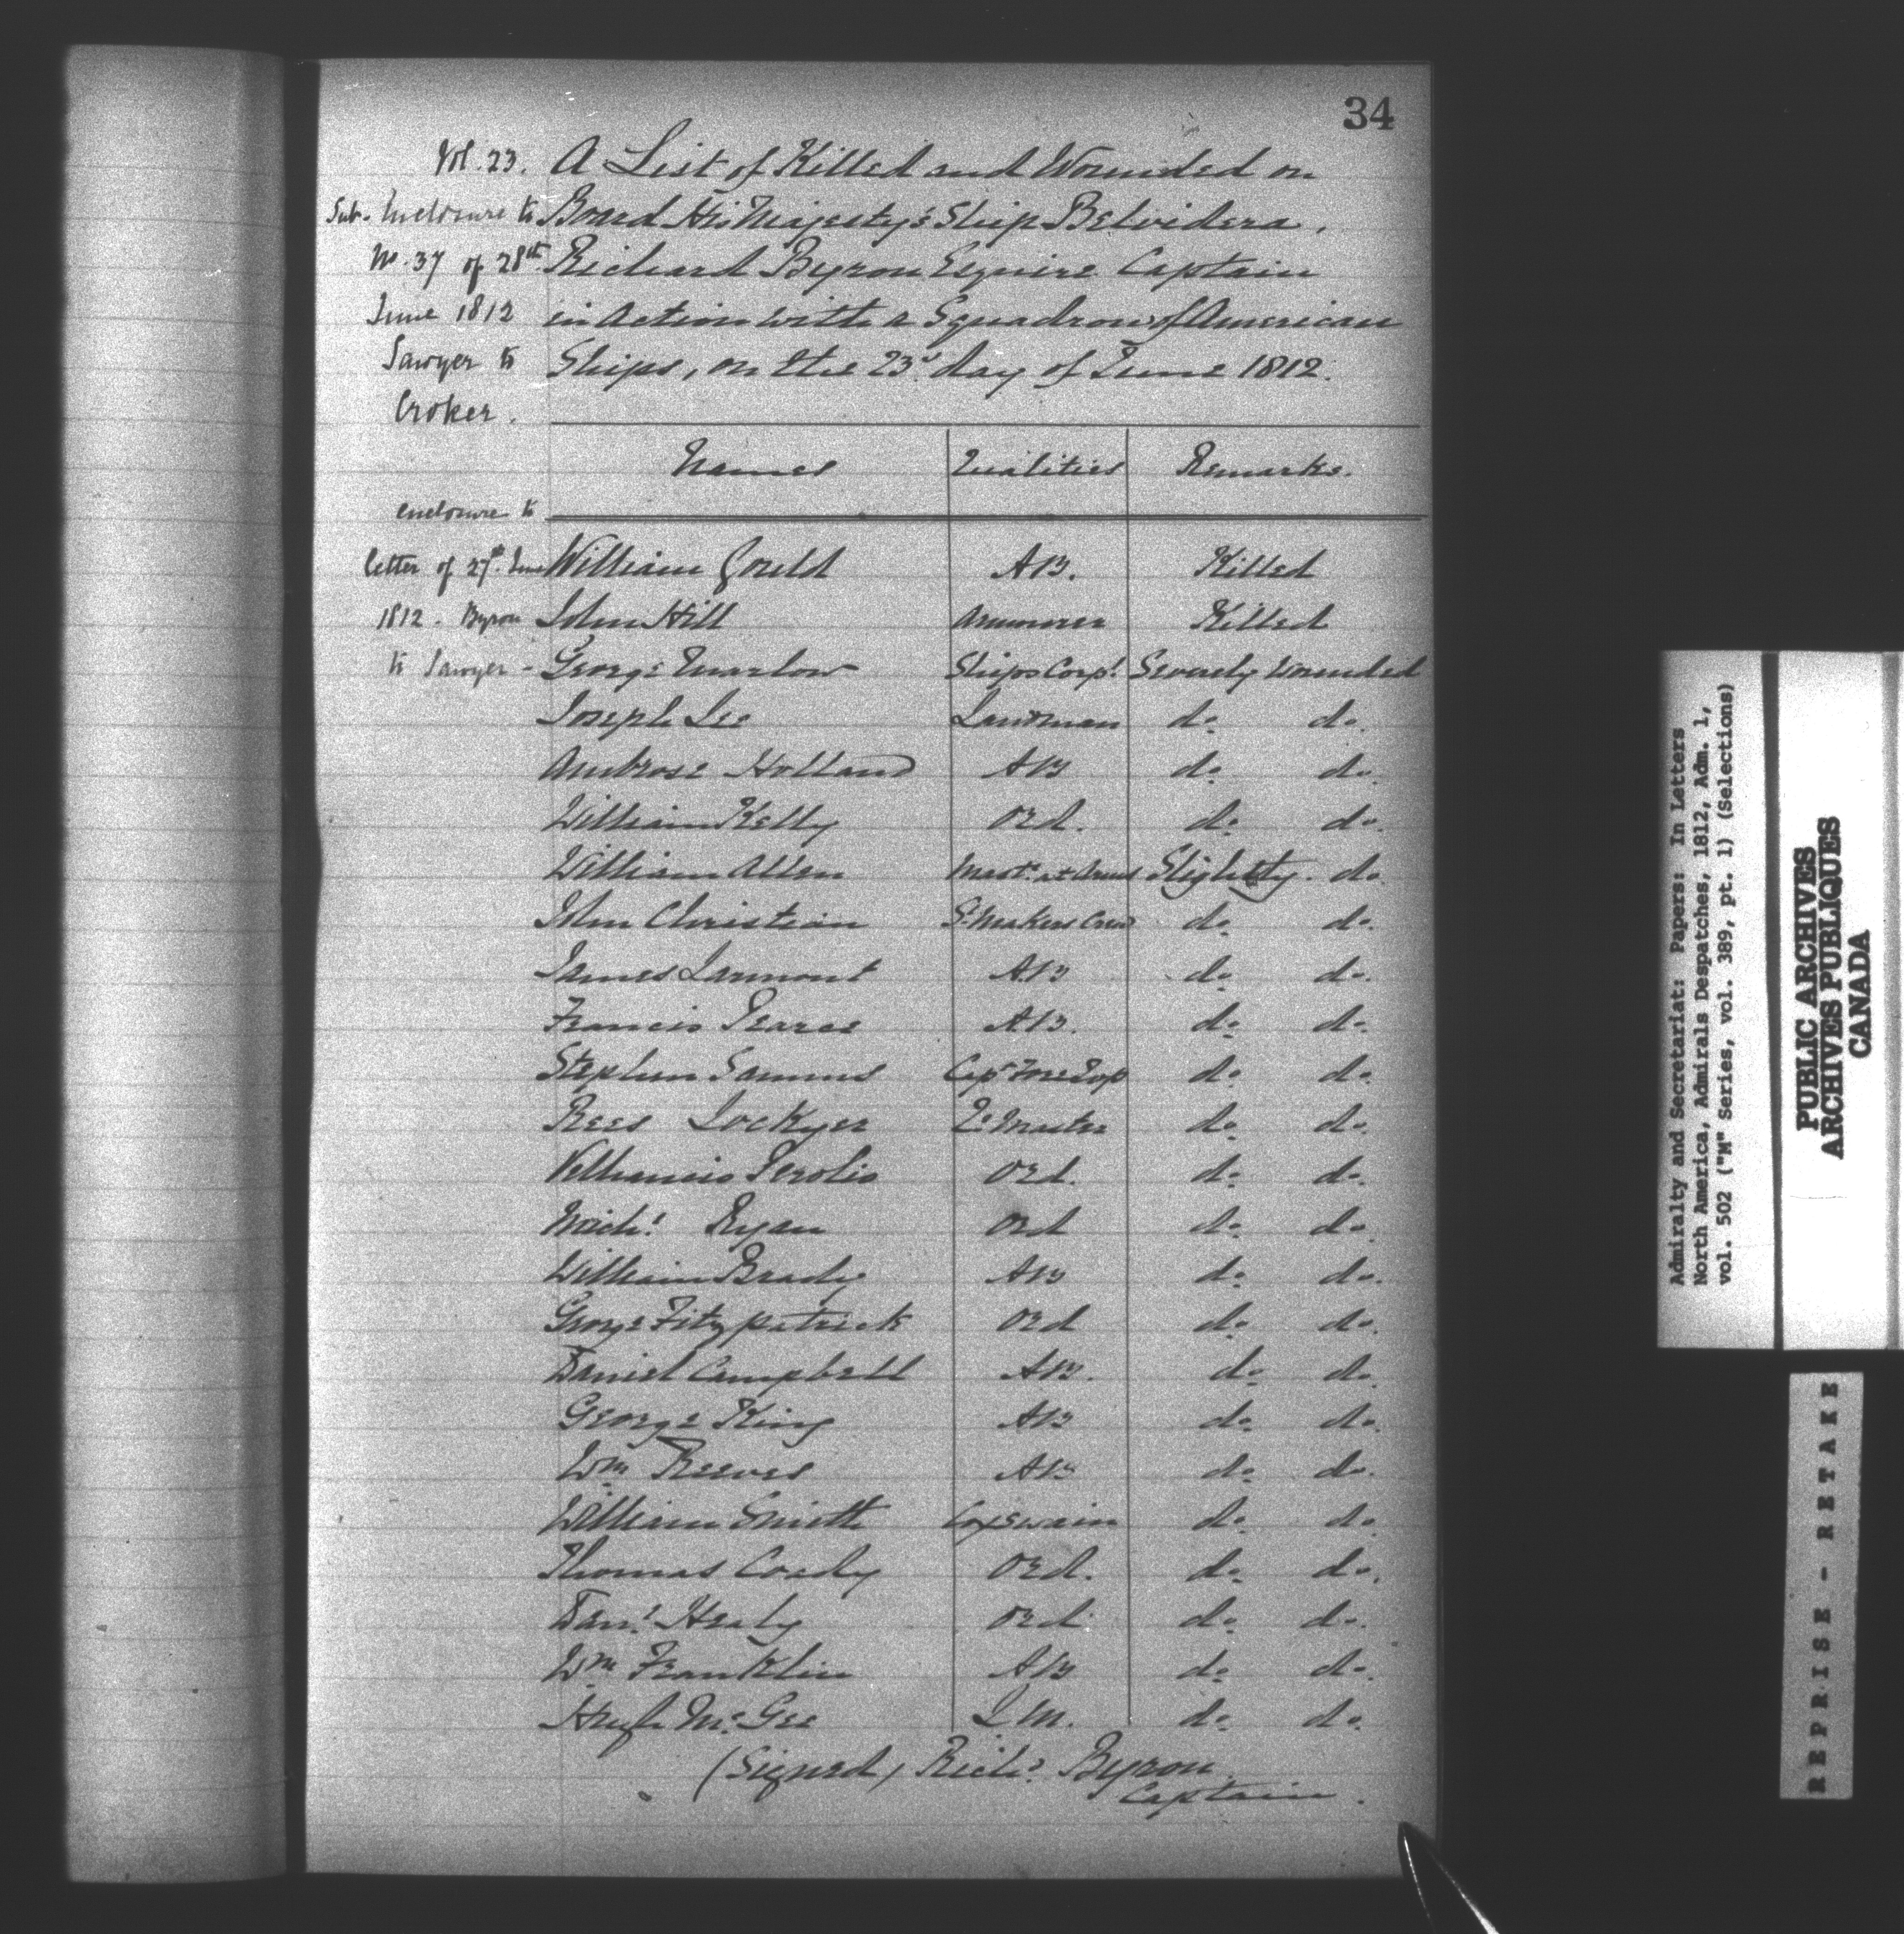 34
Vol. 23.
Sub. Enclosure to
No. 37 of 28th
June 1812
Sawyer to
Croker.
enclosure to
letter of 27th June
1812. Byron
to Sawyer -
A List of Killed and Wounded on
Board His Majesty's Ship Belvidera,
Richard Byron Esquire Captain
in Action with a Squadron of American
Ships, on the 23d. day of June 1812.
Names Qualities Remarks.
William Gould AB. Killed
John Hill Armourer Killed
George Marlow Ships Corpl. Severely Wounded
Joseph Lee Landsman do. do.
Ambrose Holland AB do. do.
William Kelly Ord. do. do.
William Allen Mastr. at Arms Slightly. do.
John Christian S. Makers Crew do. do.
James Larmont AB do. do.
Francis Pearce AB. do. do.
Stephen Sammes Capt Fore Top do. do.
Rees Lockyer Qr Master do. do.
Ord. do. do.
Michl. Ryan Ord do. do.
William Brady AB do. do.
George Fitzpatrick Ord do. do.
Daniel Campbell AB. do. do.
George King AB do. do.
Wm Reeves AB do. do.
William Smith Coxswain do. do.
Thomas Cordy Ord. do. do.
Danl. Healy Ord. do. do.
Wm Franklin AB do. do.
Hugh McGee L.M. do. do.
(Signed) Richd. Byron
Captain.
Admiralty and Secretariat: Papers: In Letters
North America, Admirals Despatches, 1812, Adm. 1,
vol. 502 ("M" Series, vol. 389, pt. 1) (Selections)
PUBLIC ARCHIVES
ARCHIVES PUBLIQUES
CANADA
REPRISE - RETAKE